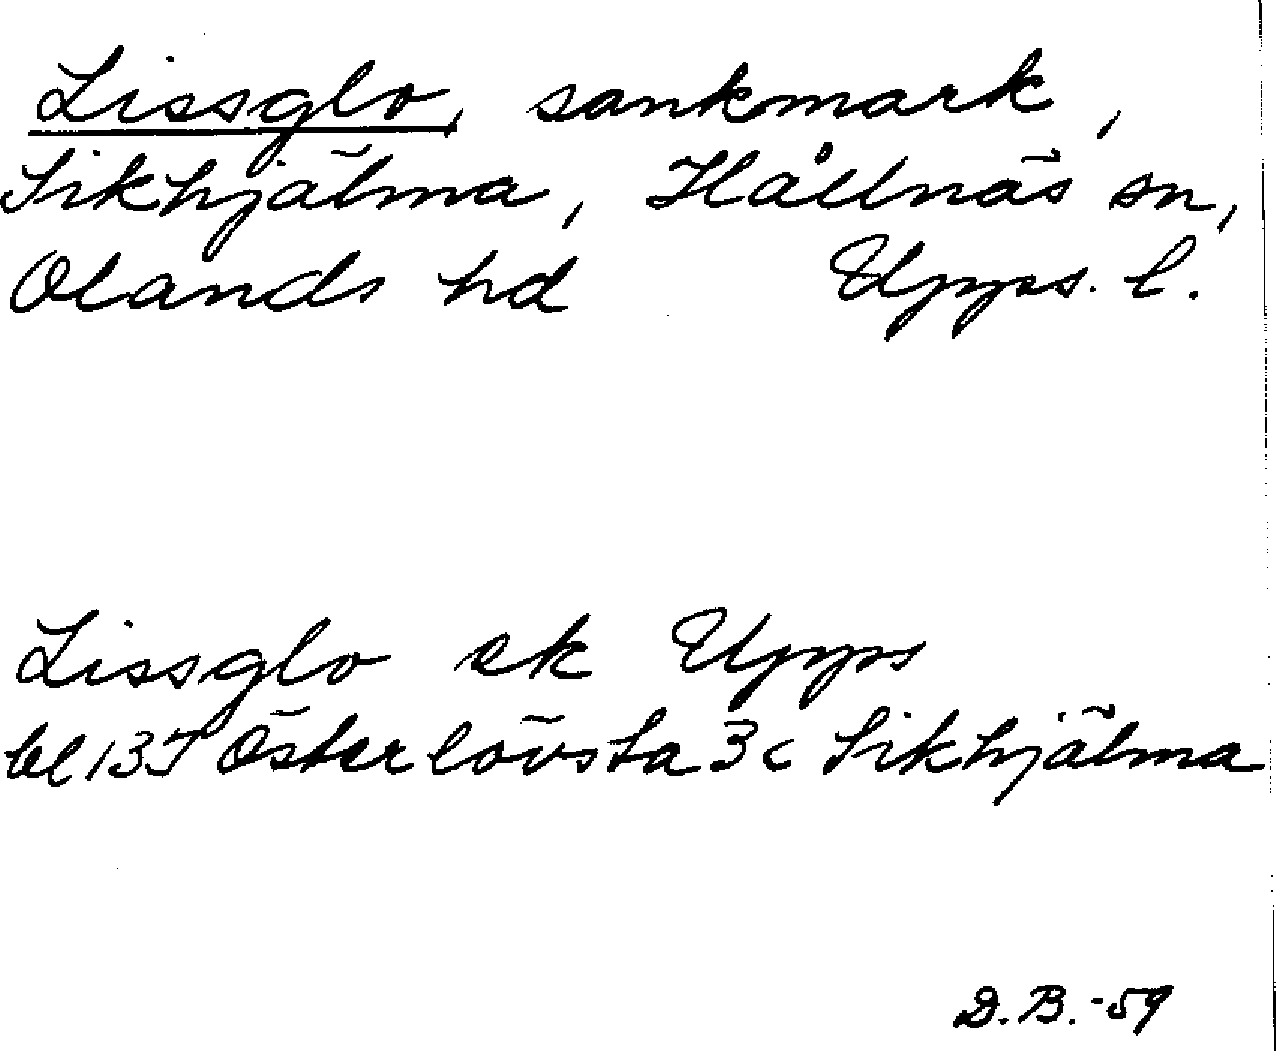 Lissglo, sankmark,
Sikhjälma, Hållnäs sn,
Olands hd Upps. l.
Lissglo ek Upps
bl 13J Österlövsta 3c Sikhjälma
D.B.-59